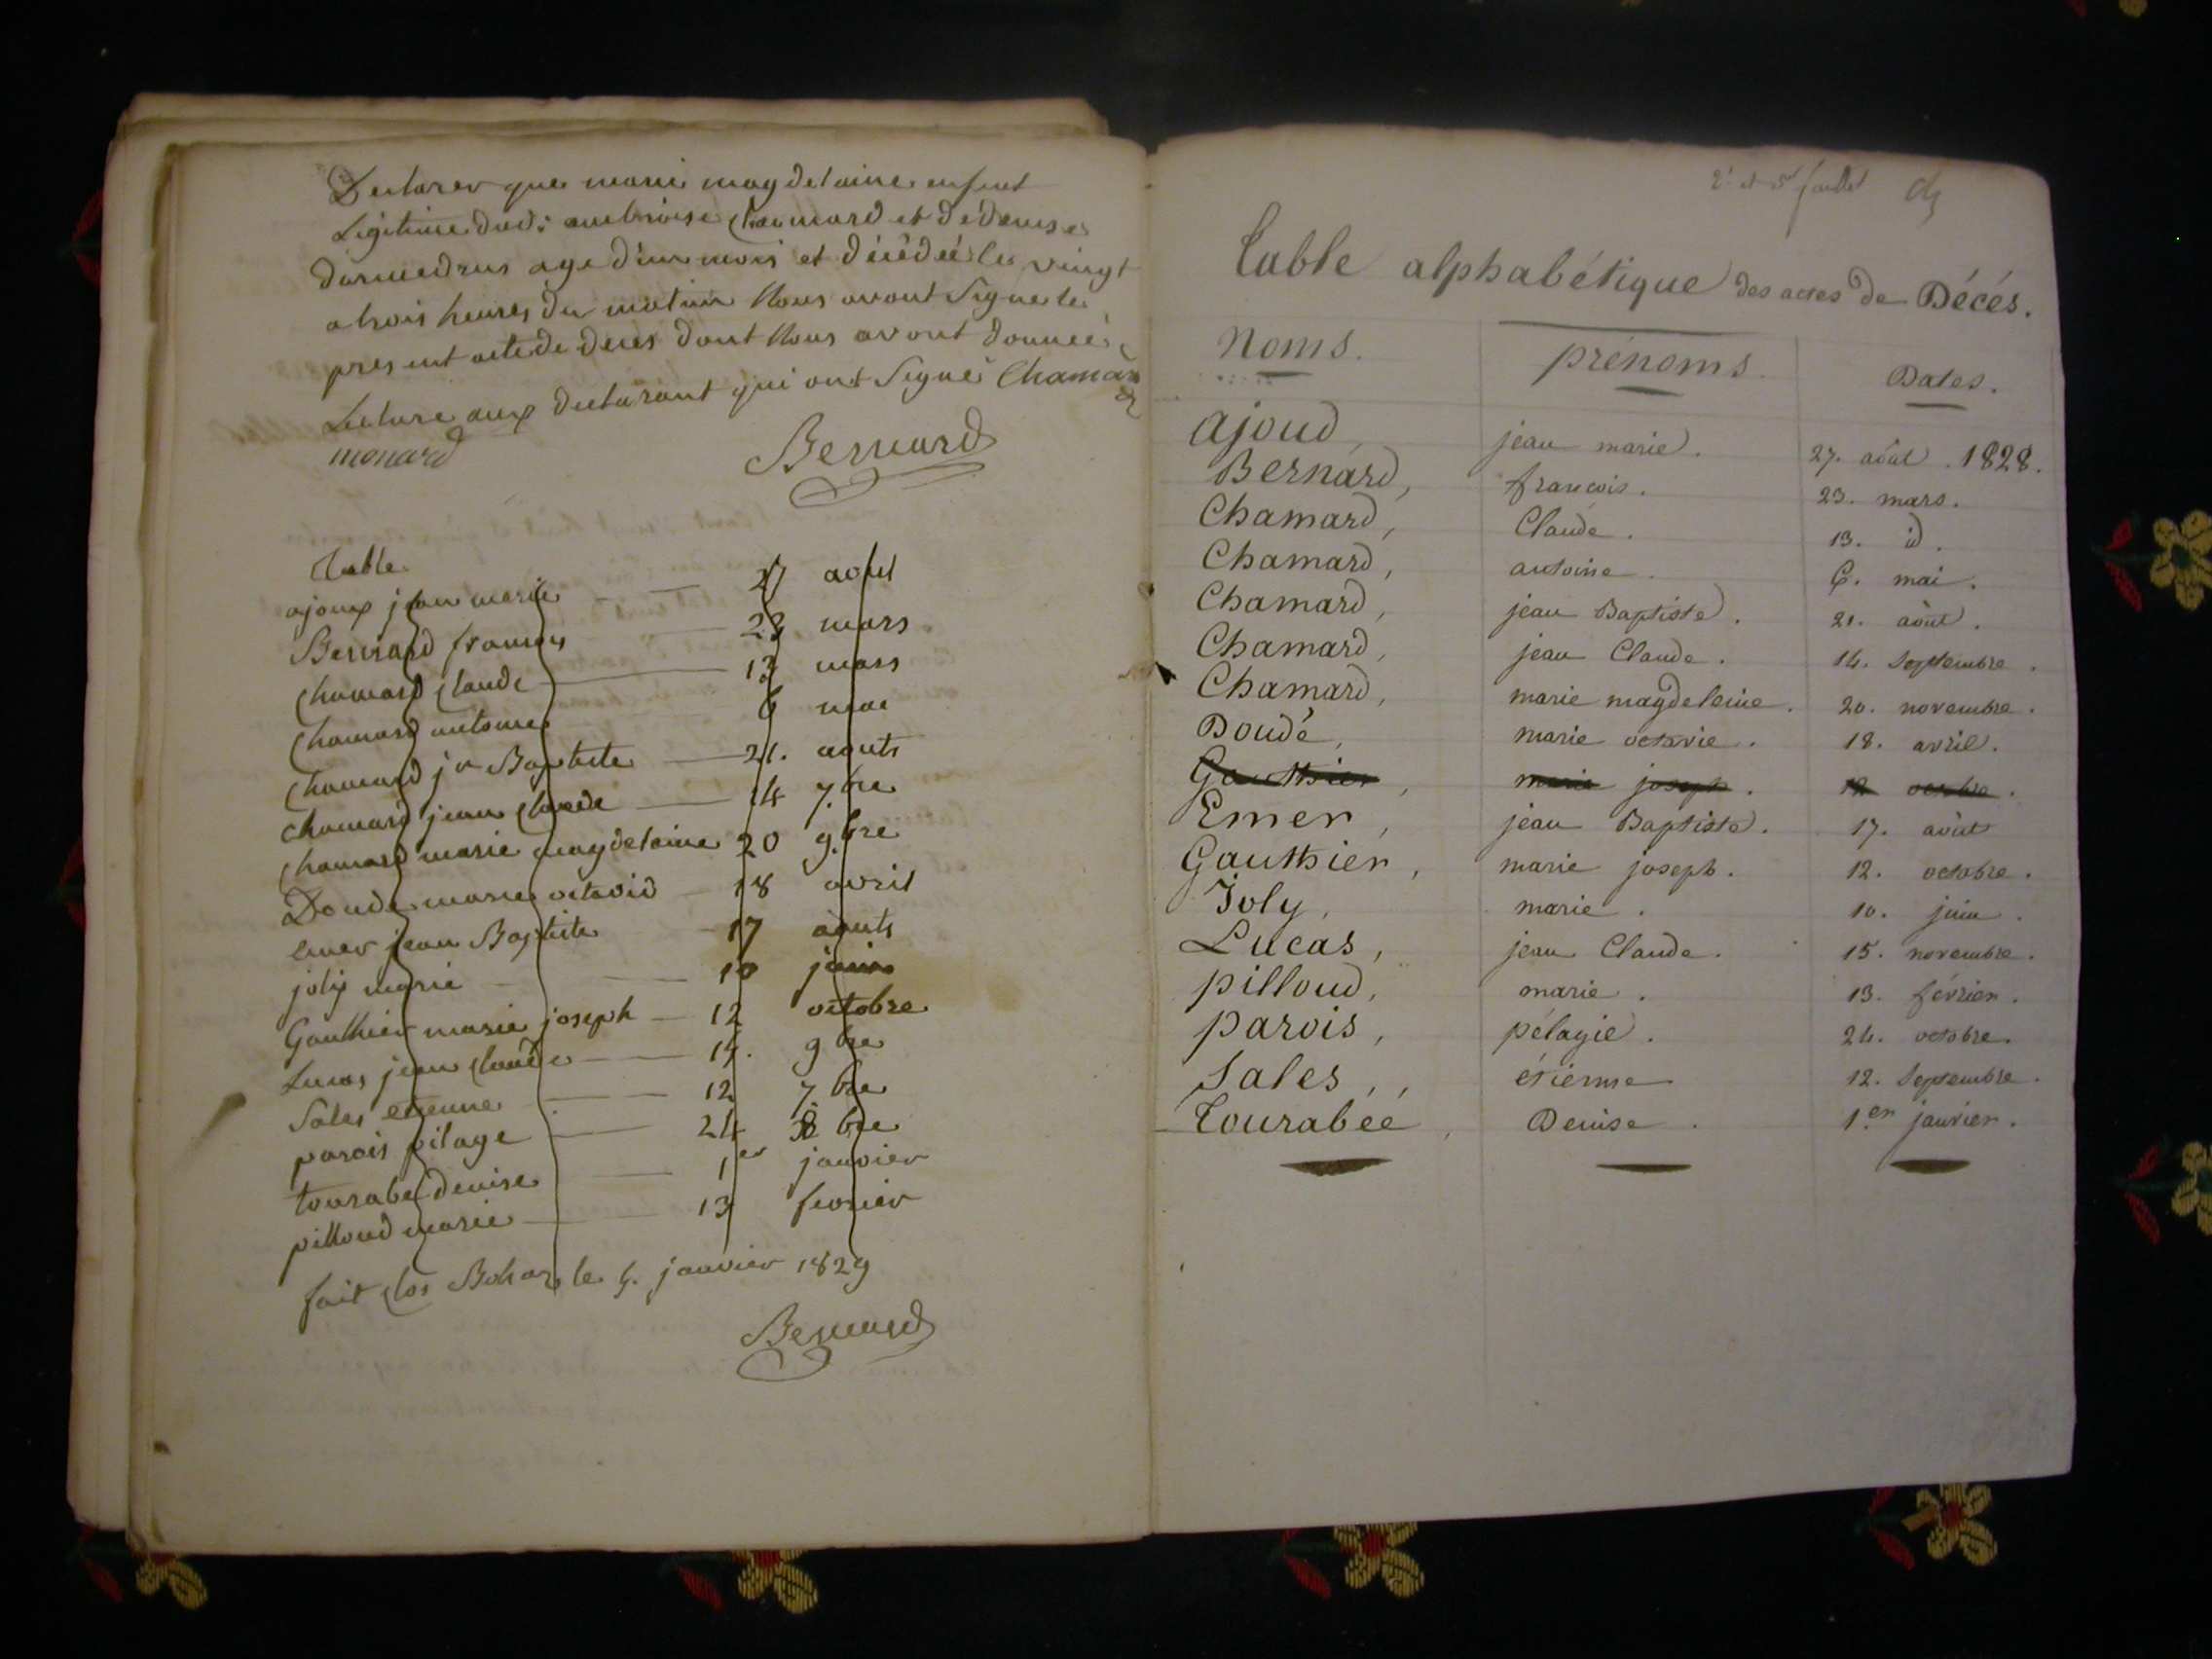 Declarer que marie magdelaine enfent
Legitime dudi ambroise Chamard et de denise
age d'un mois et décédée le vingt
a trois heures du matin Nous avont Signe le
present acte de deces dont Nous avont donnee
Lecture aux declarant qui ont Signé Chamard
monard
Bernard
Table
ajoux jean marie — 27 aout
Bernard francois — 23 mars
Chamard Claude — 13 mars
Chamard antoine 6 mai
Chamard jn Baptiste — 21. aouts
Chamard jean Claude — 14 7.bre
Chamard marie magdelaine 20 9.bre
Doude marie octavid — 18 avril
emer jean Baptiste — 17 aouts
joly marie — 10 juin
Gauthier marie joseph — 12 octobre
Lucas jean Claude — 15. 9 bre
Sales etienne — 12 7. bre
parois pilage — 24 8 bre
tourabe denise — 1er janvier
pilloud marie — 13 fevrier
fait Clos Bohas le 4. janvier 1829
Bernard
2e et 5e feuillet
Table alphabétique des actes de Décés.
Noms. prénoms. Dates.
ajoud, jean marie. 27. août. 1828.
Bernard, francois. 23. mars.
Chamard, Claude. 13. id.
Chamard, antoine. 6. mai.
Chamard, jean Baptiste. 21. août.
Chamard, jean Claude. 14. Septembre.
Chamard, marie magdeleine. 20. novembre.
Doudé, marie octavie. 18. avril.
Gauthier, marie joseph. 12 octobre.
Emer, jean Baptiste. 17. août
Gauthier, marie joseph. 12. octobre.
Joly, marie. 10. juin.
Lucas, jean Claude. 15. novembre.
pilloud, marie. 13. février.
parois, pélagie. 24. octobre.
Sales,, étienne 12. Septembre.
Tourabéé, Denise. 1.er janvier.